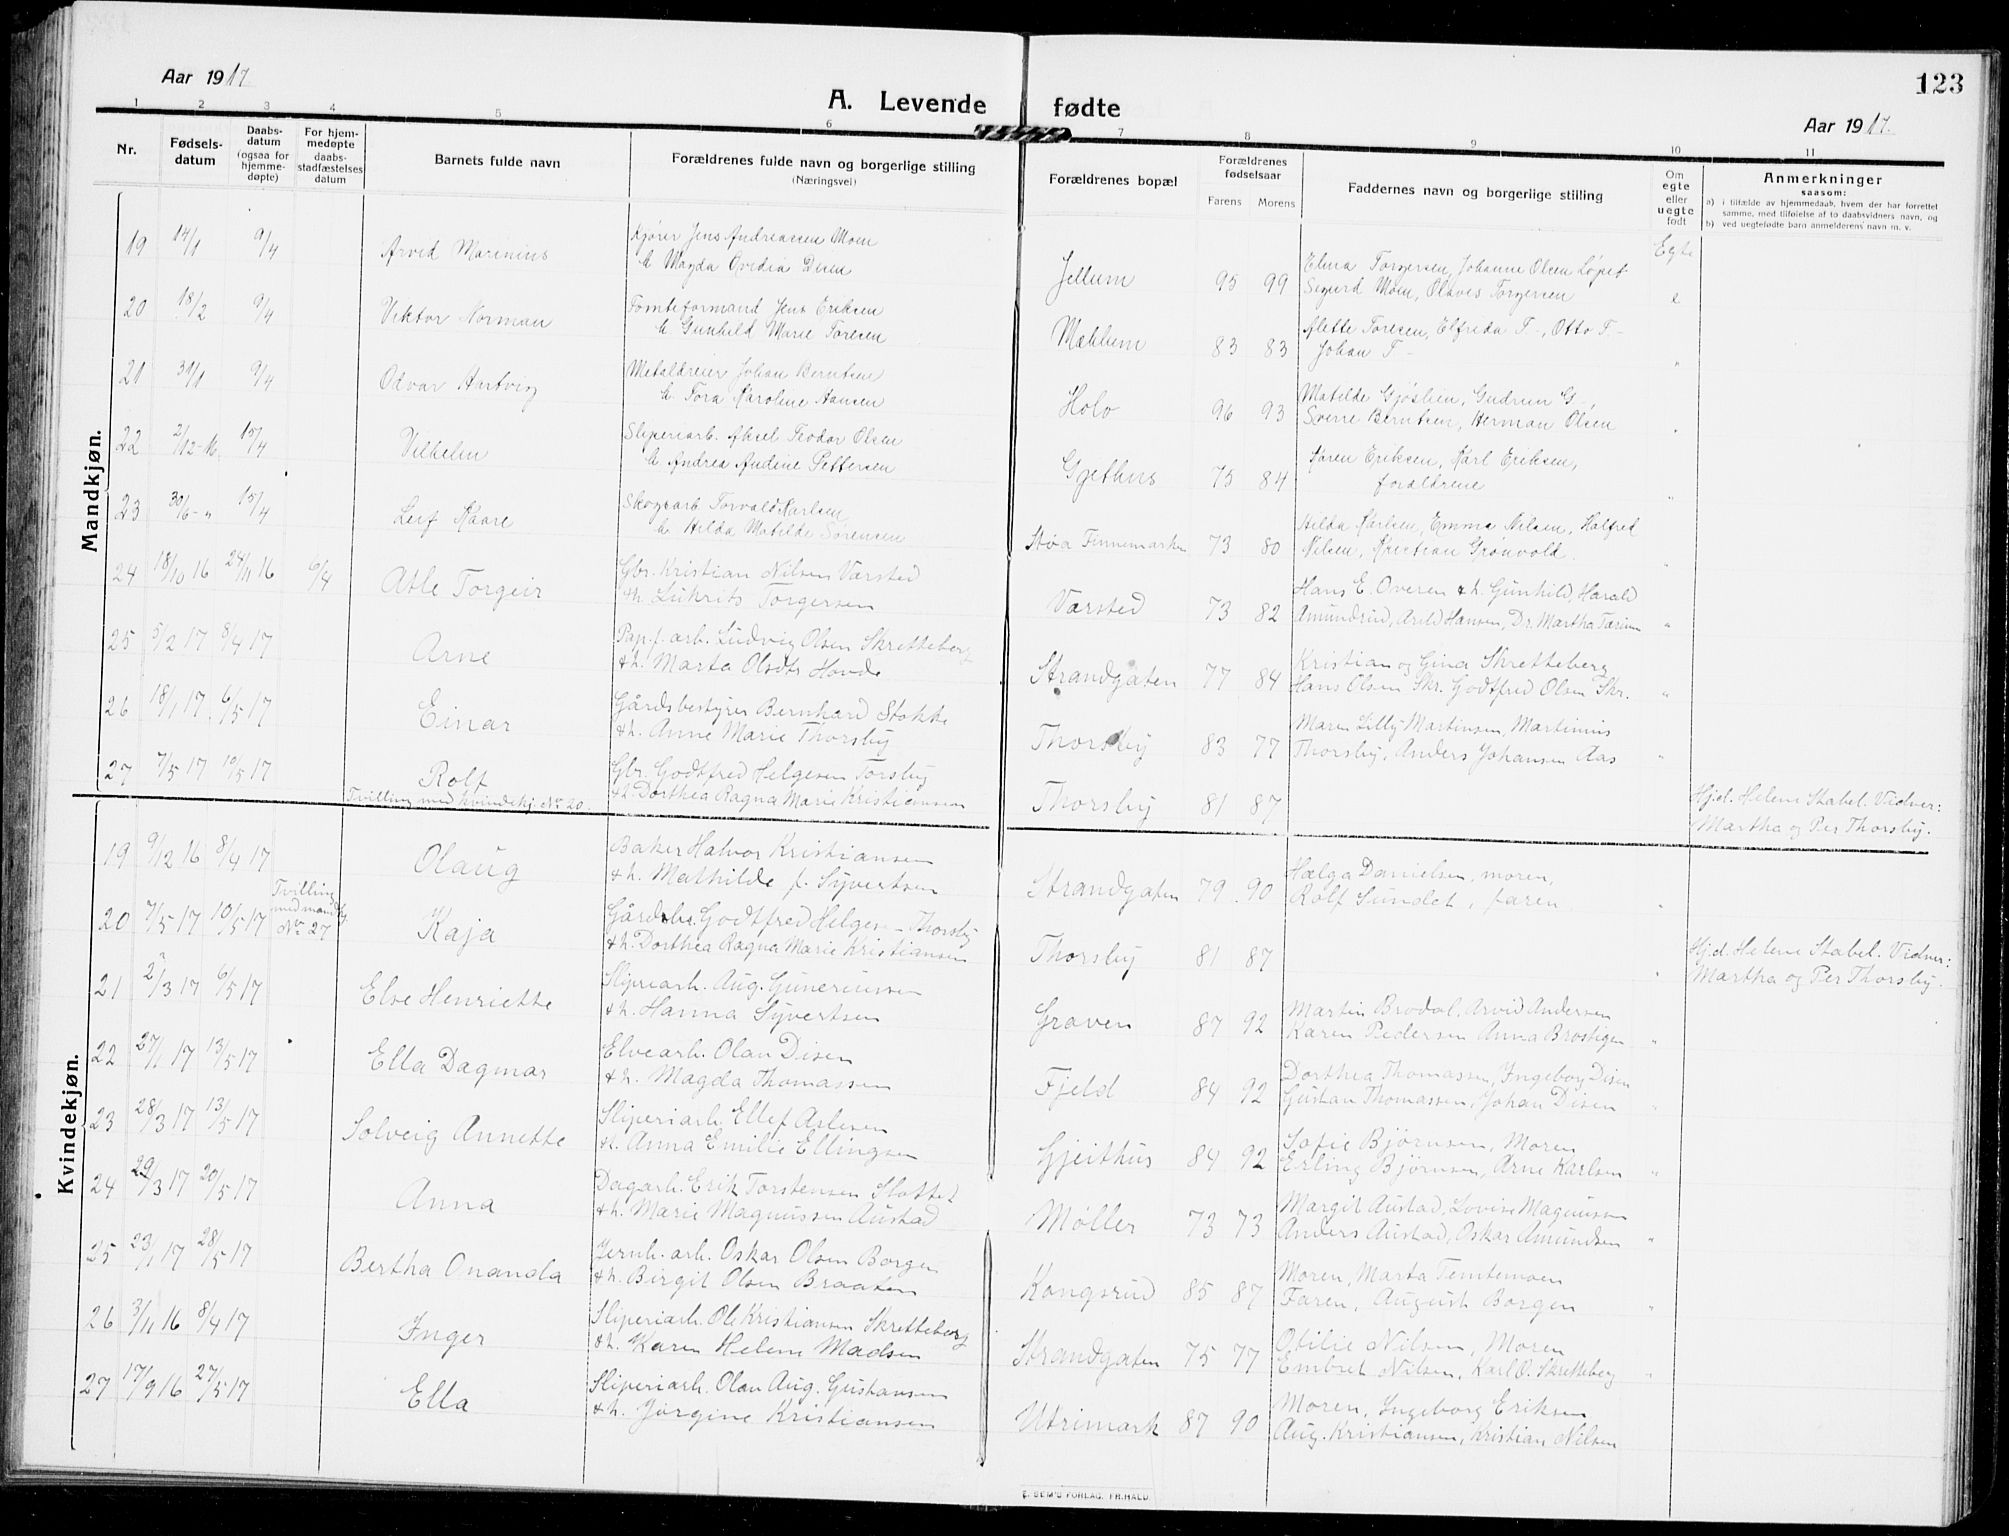 Aar 1917.
123
A. Levende fødte
Aar 1917.
1 2 3 4 5 6 7 8 9 10 11
Nr.
Fødsels-
datum
Daabs-
datum
(ogsaa for
hjemme-
døpte)
For hjem-
medøpte
daabs-
stadfæstelses
datum
Barnets fulde navn
Forældrenes fulde navn og borgerlige stilling
(Næringsvei)
Forældrenes bopæl
Forældrenes
fødselsaar
Farens Morens
Faddernes navn og borgerlige stilling
Om
egte
eller
uegte
født
Anmerkninger
saasom:
a) i tilfælde av hjemmedaab, hvem der har forrettet
samme, med tilføielse af to daabsvidners navn, og
b) ved uegtefødte barn anmelderens navn m. v.
Mandkjøn.
19 14/1 9/4 Arvid Marinius
Kjører Jens Andreassen Moen
& Magda Ovidia Disen
Jellum 95 99
Elma Torgersen, Johanne Olsen
Sigurd Moen, Olaves Torgersen
Egte
20 18/2 9/4 Viktor Norman
Tomteformand Jens Eriksen
& Gunhild Marie Toresen
Mæhlum 83 83
Alette Toresen, Elfrida T-, Otto T-
Johan T-
"
21 31/1 9/4 Odvar Hartvig
Metaldreier Johan Berntsen
& Tora Karoline Hansen
Holo 96 93
Matilde Gjøslien, Gudrun G-,
Sverre Berntsen, Herman Olsen
"
22 2/12-16 15/4 Vilhelm
Sliperiarb. Aksel Teodor Olsen
& Andrea Andine Pettersen
Gjethus 75 84
Karen Eriksen, Karl Eriksen,
forældrene
"
23 30/6-" 15/4 Leif Kaare
Skogsarb Torvald Karlsen
& Hilda Matilde Sørensen
Støa Finnemarken 73 80
Hilda Karlsen, Emma Nilsen, Halfred
Nilsen, Kristian Grønvold.
"
24 18/10 16 24/11 16 6/4 Atle Torgeir
Gbr. Kristian Nilsen Varsted
& h. Lukrits Torgersen
Varsted 73 82
Hans E. Overen & h. Gunhild, Harald
Amundrud, Arild Hansen, Dr. Martha
"
25 5/2 17 8/4 17 Arne
Pap.f. arb. Ludvig Olsen Skretteberg
& h. Marta Olsdtr Hovde
Strandgaten 77 84
Kristian og Gina Skretteberg
Hans Olsen Skr. Godtfred Olsen Skr.
"
26 18/1 17 6/5 17 Einar
Gårdsbestyrer Bernhard Stokke
& h. Anne Marie Thorsby
Thorsby 83 77
Maren Lilly Martinsen, Martinius
Thorsby, Anders Johansen Aas
"
27 7/5 17 10/5 17 Rolf
Tvilling med kvindekj. Nr 20.
Gbr. Godtfred Helgesen Torsby
& h. Dorthea Ragna Marie Kristiansen
Thorsby 81 87
Hj.d. Helene Stabel. Vidner:
Martha og Per Thorsby.
Kvindekjøn.
19 9/12 16 8/4 17 Olaug
Baker Halvor Kristiansen
& h. Mathilde f. Syvertsen
Strandgaten 79 90
Hælga Danielsen, moren,
Rolf Sundet, faren.
"
20 7/5 17 10/5 17
Tvilling
med mandkj.
Nr 27
Kaja
Gårdbr. Godtfred Helgesen Thorsby
& h. Dorthea Ragna Marie Kristiansen
Thorsby 81 87
"
Hj.d. Helene Stabel. Vidner:
Martha og Per Thorsby.
21 2/3 17 6/5 17 Else Henriette
Sliperiarb. Aug. Gunerius­sen
& h. Hanna Syvertsen
Graven 87 92
Martin Brodal, Arvid Andersen
Karen Pedersen Anna Brostigen
"
22 27/1 17 13/5 17 Ella Dagmar
Elvearb. Olav Disen
& h. Magda Thomassen
Fjeld 84 92
Dorthea Thomassen, Ingeborg Disen
Gustav Thomassen, Johan Disen
"
23 28/3 17 13/5 17 Solveig Annette
Sliperiarb. Ellef Aslesen
& h. Anna Emilie Ellingsen
Gjeithus 84 92
Sofie Bjørnsen, Moren
Erling Bjørnsen, Arne Karlsen
"
24 29/3 17 20/5 17 Anna
Dagarb. Erik Torstensen Slottet
& h. Marie Magnussen Austad
Møller 73 73
Margit Austad, Lovise Magnussen
Anders Austad, Oskar Amundsen
"
25 23/1 17 28/5 17 Bertha Onanda
Jernb. arb. Oskar Olsen Borgen
& h. Birgit Olsen Braaten
Kongsrud 85 87
Moren, Marta Temtemoen
Faren, August Borgen
"
26 3/11 16 8/4 17 Inger
Sliperiarb. Ole Kristiansen Skretteberg
& h. Karen Helene Madsen
Strandgaten 75 77
Otilie Nilsen, Moren
Embret Nilsen, Karl O. Skretteberg
"
27 17/9 16 27/5 17 Ella
Sliperiarb. Olav Aug. Gustavsen
& h. Jørgine Kristiansen
Utrimark 87 90
Moren, Ingeborg Eriksen
Aug. Kristiansen, Kristian Nilsen
E. SEM'S FORLAG, FR.HALD